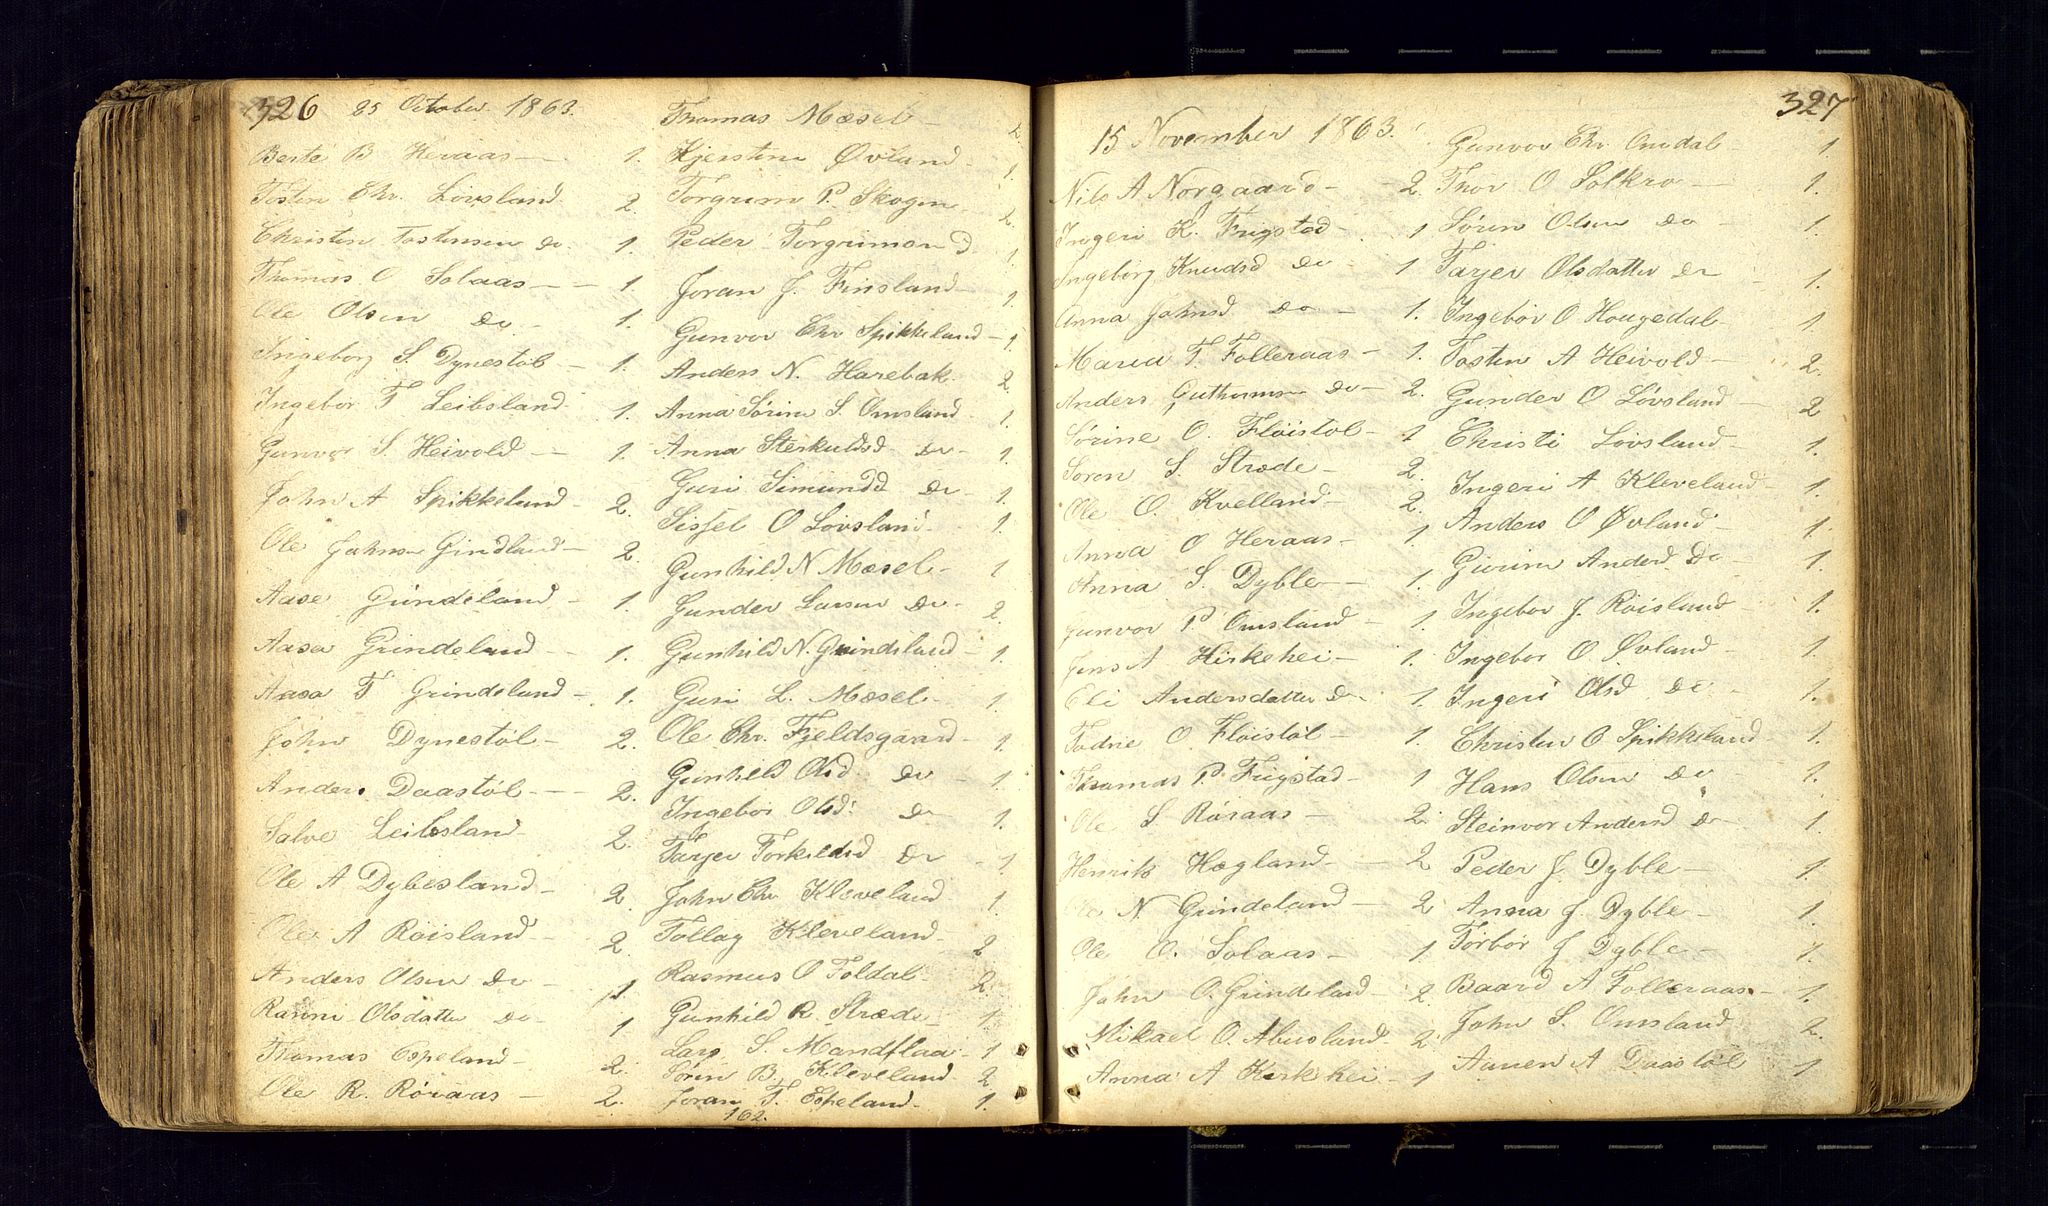 326 25 October 1863.
Berte B Heraas - 1.
Tosten Chr. Lövsland 2.
Christen Tostensen do. 1.
Thomas O Solaas - - 1.
Ole Olsen do - 1.
Ingeborg S. Dynestöl - 1.
Ingebor T Leibsland 1.
Gunvor S. Heivold - 1.
John A Spikkeland 2.
Ole Johnsen Grindland - 2.
Aase Grindeland - 1.
Aasa Grindeland - 1.
Aasa T Grindeland - 1.
John Dynestöl - 2.
Anders Daastöl - - 2.
Salve Leibsland 2.
Ole A Dybesland - 2.
Ole A Röisland - 2.
Anders Olsen do - 1
Olsdatter do - 1
Thomas Espeland - 2.
Ole R. Röraas - 2.
Thomas Mæsel - 2
Kjerstine Øvland 1.
Torgrim P. Skogen 2.
Peder Torgrimson d. 1
Joran J. Finsland - 1
Gunvor Chr Spikkeland - 1.
Anders N. Harebak. 2
Anna Sörine S. Omsland 1
Anna Sterkuldsd do - 1.
Guri Simundsd do - 1.
Sissel O Lövsland. 1.
Gunhild N Mæsel - 1
Gunder Larsen do - 2.
Gunhild N. Grindeland - 1.
Guri L. Mæsel. 1.
Ole Chr. Fjeldsgaard - 1.
Gunhild Olsd. do - 1
Ingebor Olsd. do 1.
Tarjer Torkildsd do - 1
John Chr Kleveland 1.
Tollag Kleveland 2.
Rasmus O Foldal - 2.
Gunhild R. Stræde - 1
Lars S. Mandflaa - 1
Sören B. Kleveland 2
Joran T. Espeland - 1.
162.
327
15 November 1863.
Nils A Norgaard - 2
Ingeri K. Frigstad - 1
Ingeborg Knudsd do - 1
Anna Johnsd do - 1.
Maria T. Folleraas - 1.
Anders Guthormsen do - 2.
Sörine O. Flöistöl - 1
Soren S Stræde - 2
Ole O. Kvelland - 2.
Anna O Heraas - 1
Anna S. Dyble - 1.
Gunvor P. Omsland - 1.
Jens A Hirkehei - 1.
Eli Andersdatter do 1.
Todne O. Flöistöl - 1.
Thomas P. Frigstad - 1
Ole S Röraas - 2.
Henrik Hægland - - 2
Ole N Grindeland - 2
Ole O. Solaas - 1
John O. Grindeland - 2.
Mikael O. Abusland - 2
Anna A Kirkehei 1
Gunvor Chr. Omdal - 1.
Thor O Solkro - 1.
Sören Olsen do - 1.
Tarjer Olsdatter do 1.
Ingebor O Hougedal - 1
Tosten A Heivold - 2.
Gunder O Lövsland - 2
Christi Lövsland - 1.
Ingeri A Kleveland - 1.
Anders O Øvland - 1.
Gurine Andersd do - 1.
Ingebor J. Röisland 1.
Ingebor O. Øvland - 1.
Ingeri Olsd do - 1.
Christen O Spikkeland - 1.
Hans Olsen do 1.
Steinvor Andersd do - 1.
Peder J. Dyble - 1.
Anna J. Dyble - 1.
Torbor J Dyble - 1.
Baard A Folleraas - 1.
John S. Omsland 2.
Aanen A Daastöl 1